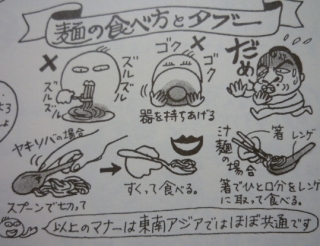 麺の食べ方とタブー
ズルズル
ズルズル
ゴク
ゴク
だめ
器を持ちあげる
ヤキソバの場合
スプーンで切って
すくって食べる。
汁麺の場合
箸
レンゲ
箸でひと口分をレンゲ
に取って食べる。
以上のマナーは東南アジアではほぼ共通です